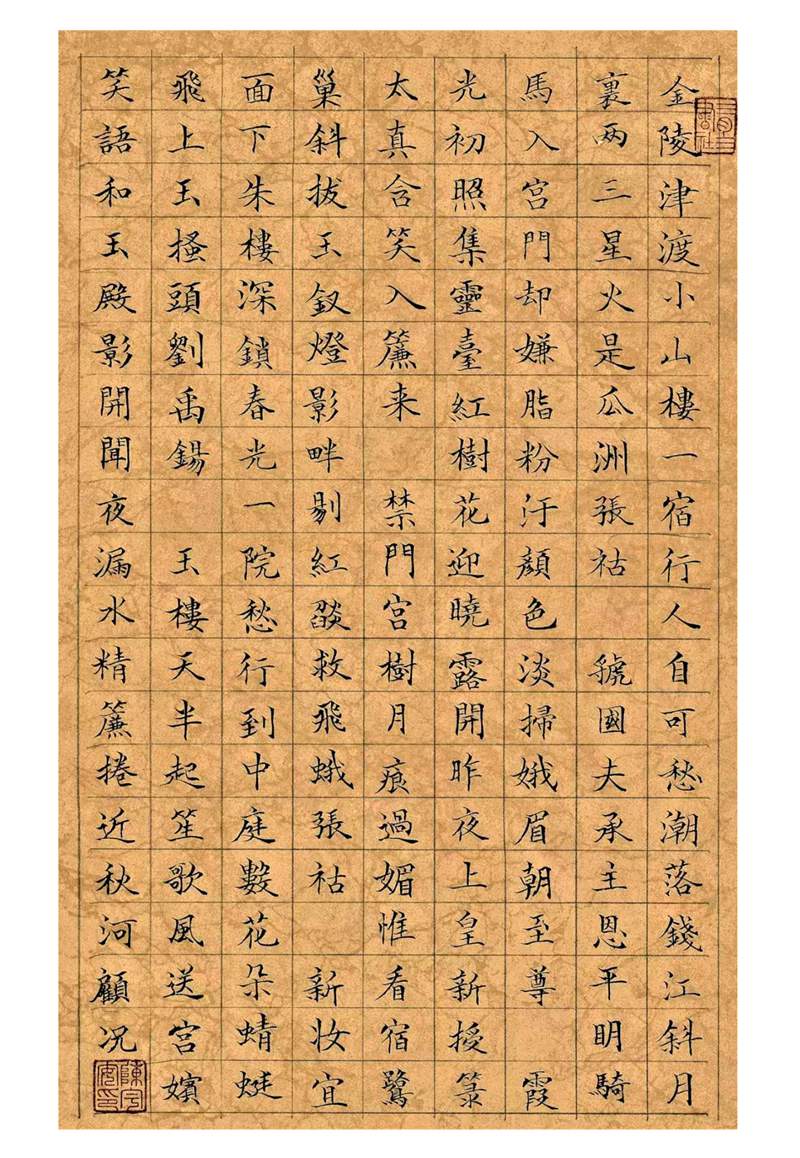 金陵津渡小山樓一宿行人自可愁潮落錢江斜月
裏兩三星火是瓜洲張祜 虢國夫承主恩平明騎
馬入宮門却嫌脂粉汙顏色淡掃娥眉朝至尊 霞
光初照集靈臺紅樹花迎曉露開昨夜上皇新授籙
太真含笑入簾来 禁門宮樹月痕過媚惟看宿鷺
巢斜拔玉釵燈影畔剔紅燄救飛蛾張祜 新妝宜
面下朱樓深鎖春光一院愁行到中庭數花朵蜻蜓
飛上玉搔頭劉禹錫 玉樓天半起笙歌風送宮嬪
笑語和玉殿影開聞夜漏水精簾捲近秋河顧況